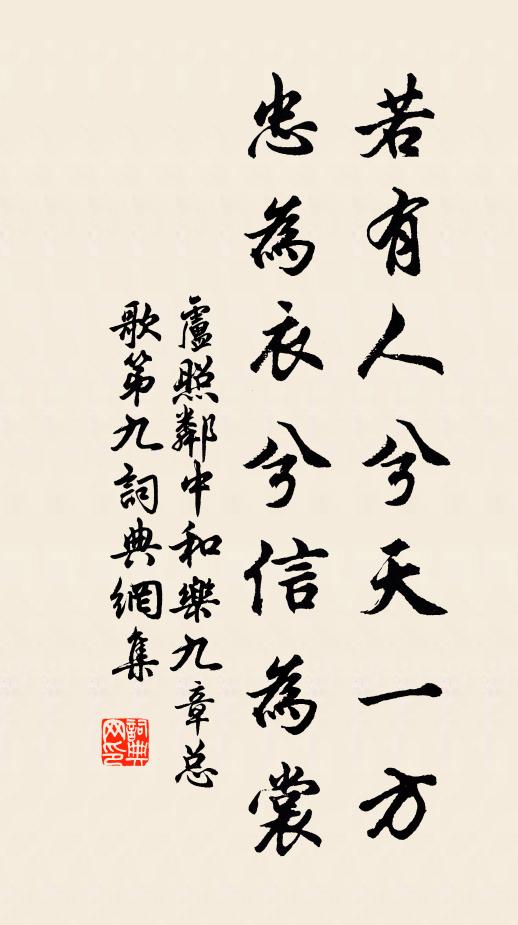 若有人兮天一方
忠為衣兮信為裳
盧照鄰中和樂九章总
歌第九詞典網集
詞典网印